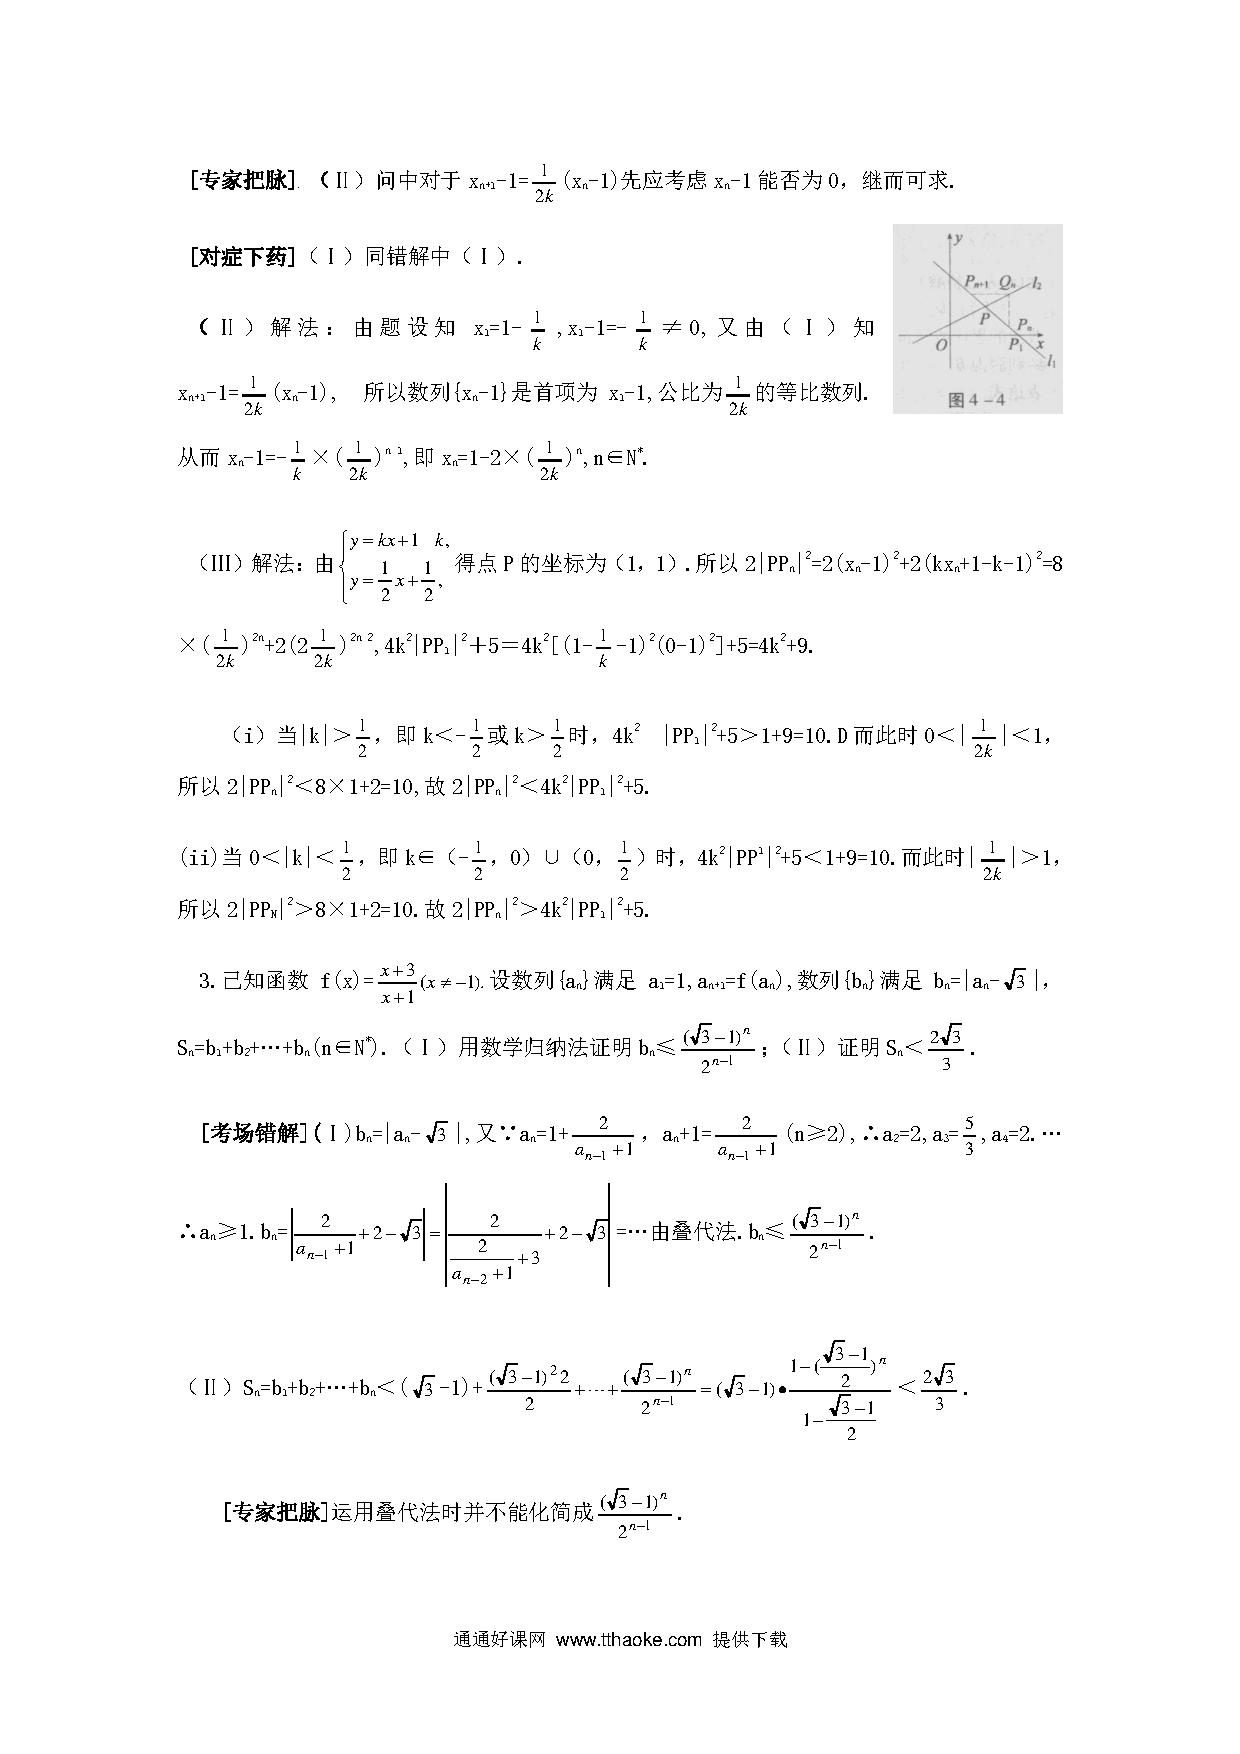 [专家把脉].（Ⅱ）问中对于 xₙ₊₁-1=\frac{1}{2k}(xₙ-1)先应考虑 xₙ-1 能否为 0，继而可求.
[对症下药]（Ⅰ）同错解中（Ⅰ）.
（Ⅱ）解法：由题设知 x₁=1-\frac{1}{k},x₁-1=-\frac{1}{k}≠0,又由（Ⅰ）知
xₙ₊₁-1=\frac{1}{2k}(xₙ-1), 所以数列{xₙ-1}是首项为 x₁-1,公比为\frac{1}{2k}的等比数列.
从而 xₙ-1=-\frac{1}{k}×(\frac{1}{2k})^{n-1},即 xₙ=1-2×(\frac{1}{2k})^{n},n∈N^{*}.
y
Pₙ₊₁ Qₙ l₂
P Pₙ
O P₁ x
l₁
图 4－4
（Ⅲ）解法：由\begin{cases}y=kx+1 k,\\y=\frac{1}{2}x+\frac{1}{2},\end{cases}得点 P 的坐标为(1，1).所以 2|PPₙ|²=2(xₙ-1)²+2(kxₙ+1-k-1)²=8
×(\frac{1}{2k})^{2n}+2(2\frac{1}{2k})^{2n-2},4k²|PP₁|²＋5＝4k²[(1-\frac{1}{k}-1)²(0-1)²]+5=4k²+9.
（i）当|k|＞\frac{1}{2}，即 k＜-\frac{1}{2}或 k＞\frac{1}{2}时，4k² |PP₁|²+5＞1+9=10.D 而此时 0＜|\frac{1}{2k}|＜1，
所以 2|PPₙ|²＜8×1+2=10,故 2|PPₙ|²＜4k²|PP₁|²+5.
(ii)当 0＜|k|＜\frac{1}{2}，即 k∈（-\frac{1}{2}，0）∪（0，\frac{1}{2}）时，4k²|PP¹|²+5＜1+9=10.而此时|\frac{1}{2k}|＞1，
所以 2|PP_N|²＞8×1+2=10.故 2|PPₙ|²＞4k²|PP₁|²+5.
3.已知函数 f(x)=\frac{x+3}{x+1}(x≠-1).设数列{aₙ}满足 a₁=1,aₙ₊₁=f(aₙ),数列{bₙ}满足 bₙ=|aₙ-√3|，
Sₙ=b₁+b₂+…+bₙ(n∈N^{*}).（Ⅰ）用数学归纳法证明 bₙ≤\frac{(√3-1)^{n}}{2^{n-1}}；（Ⅱ）证明 Sₙ＜\frac{2√3}{3}.
[考场错解](Ⅰ)bₙ=|aₙ-√3|,又∵aₙ=1+\frac{2}{a_{n-1}+1}，aₙ+1=\frac{2}{a_{n-1}+1}(n≥2),∴a₂=2,a₃=\frac{5}{3},a₄=2.…
∴aₙ≥1.bₙ=\left|\frac{2}{a_{n-1}+1}+2-√3\right|=\left|\frac{2}{\frac{2}{a_{n-2}+1}+3}+2-√3\right|=…由叠代法.bₙ≤\frac{(√3-1)^{n}}{2^{n-1}}.
（Ⅱ）Sₙ=b₁+b₂+…+bₙ＜(√3-1)+\frac{(√3-1)^{2}2}{2}+…+\frac{(√3-1)^{n}}{2^{n-1}}=(√3-1)•\frac{1-(\frac{√3-1}{2})^{n}}{1-\frac{√3-1}{2}}＜\frac{2√3}{3}.
[专家把脉]运用叠代法时并不能化简成\frac{(√3-1)^{n}}{2^{n-1}}.
通通好课网 www.tthaoke.com 提供下载